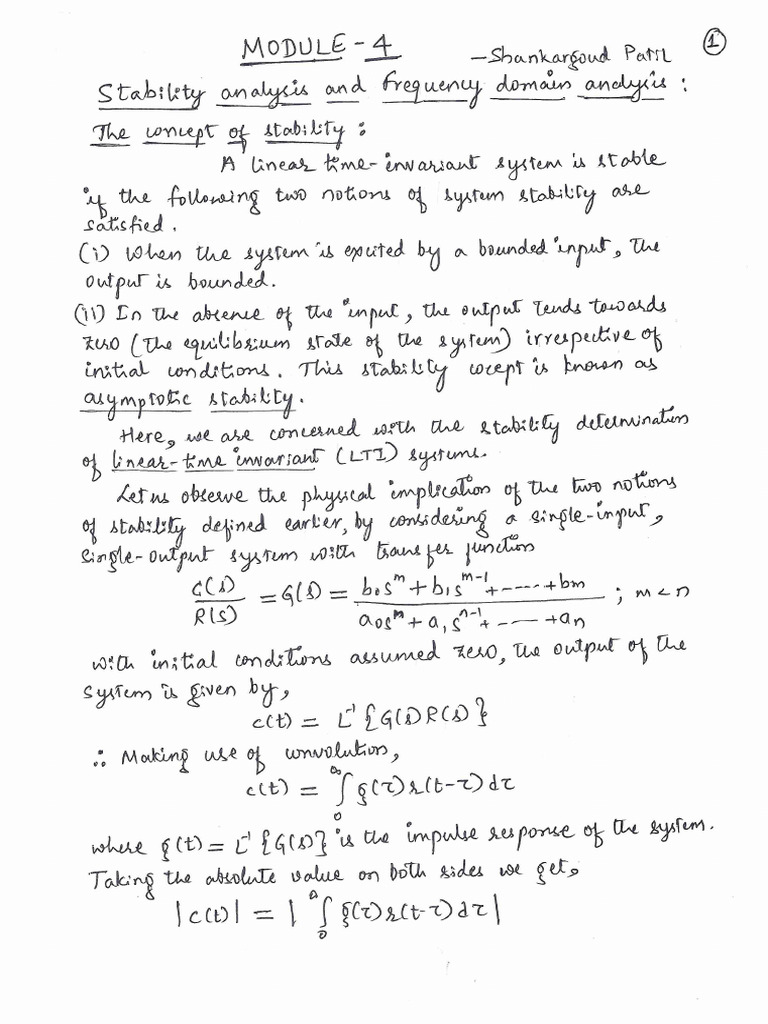 MODULE - 4
- Shankargoud Patil
1
Stability analysis and frequency domain analysis :
The concept of stability :
A linear time-invariant system is stable
if the following two notions of system stability are
satisfied.
(i) When the system is excited by a bounded input, the
output is bounded.
(ii) In the absence of the input, the output tends towards
zero (the equilibrium state of the system) irrespective of
initial conditions. This stability cocept is known as
asymptotic stability.
Here, we are concerned with the stability determination
of linear-time invariant (LTI) systems.
Let us observe the physical implication of the two notions
of stability defined earlier, by considering a single-input,
single-output system with transfer function
C(s)/R(s) = G(s) = (b₀s^m + b₁s^(m-1) + ----- + bm)/(a₀s^n + a₁s^(n-1) + ---- + an) ; m < n
with initial conditions assumed zero, the output of the
system is given by,
c(t) = L⁻¹ {G(s)R(s)}
∴ Making use of convolution,
c(t) = ∫₀^∞ g(τ) r(t-τ) dτ
where g(t) = L⁻¹ {G(s)} is the impulse response of the system.
Taking the absolute value on both sides we get,
|c(t)| = | ∫₀^∞ g(τ) r(t-τ) dτ |